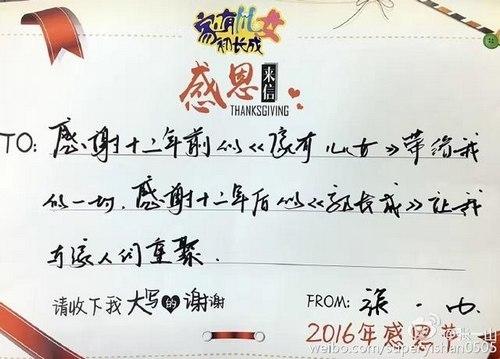 家有儿女
初长成
感恩来信
THANKSGIVING
TO: 感谢十二年前的《家有儿女》带给我
的一切,感谢十二年后的《初长成》让我
与家人们重聚.
请收下我大写的谢谢
FROM: 张一山
2016年感恩节
@张一山
weibo.com/superyishan0505